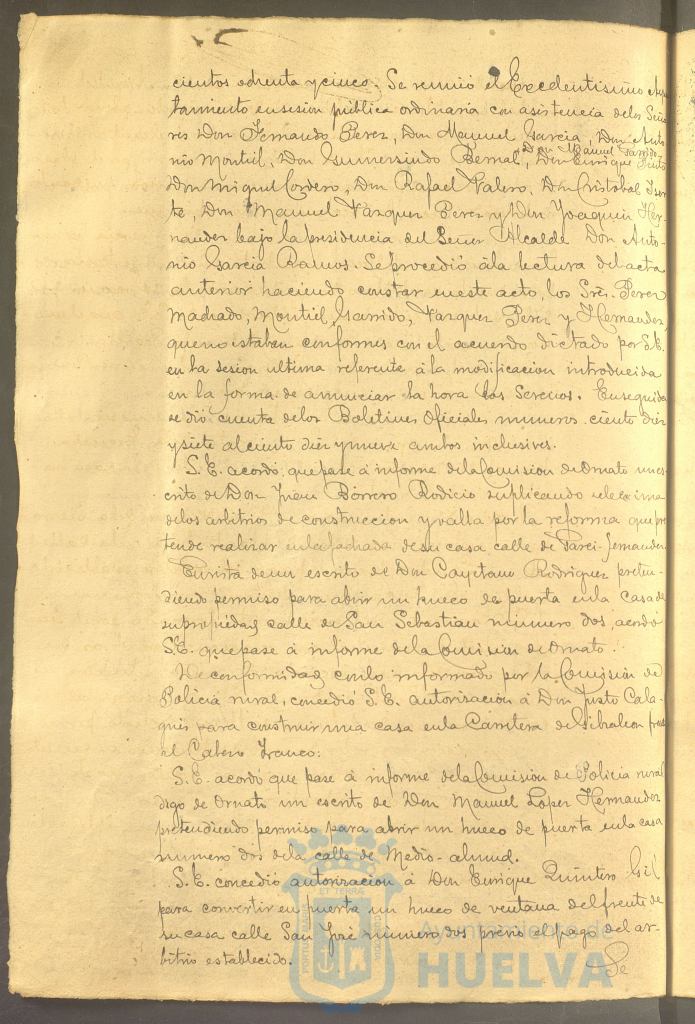 cientos ochenta y cinco. Se reunió el Excelentisimo Ayun
tamiento en sesion pública ordinaria con asistencia de los Seño
res Don Fernando Perez, Don Manuel Garcia, Don Anto
nio Montiel, Don Gumersindo Bernal, Don Manuel Garrido, Don Enrique
Don Miguel Cordero, Don Rafael Valero, Don Cristóbal
Don Manuel Vazquez Perez y Don Joaquin Her-
nandez bajo la presidencia del Señor Alcalde Don Anto-
nio Garcia Ramos. Se procedió á la lectura del acta
anterior haciendo constar en este acto, los Sres. Perez
Machado, Montiel, Garrido, Vazquez Perez y Hernandez,
que no estaban conformes con el acuerdo dictado por S.E.
en la sesion ultima referente á la modificacion introducida
en la forma de anunciar la hora los Serenos. Enseguida
se dió cuenta de los Boletines Oficiales numeros ciento diez
y siete al ciento diez y nueve ambos inclusives.
S.E. acordó que pase á informe de la Comision de Ornato un es-
crito de Don Juan Borrero Rodicio suplicando se le exima
de los arbitrios de construccion y valla por la reforma que pre
tende realizar en la fachada de su casa calle de
En vista de un escrito de Don Cayetano Rodriguez preten-
diendo permiso para abrir un hueco de puerta en la casa de
su propiedad calle de San Sebastian numero dos, acordó
S.E. que pase á informe de la Comision de Ornato.
De conformidad con lo informado por la Comision de
Policia rural, concedió S.E. autorizacion á Don Justo
para construir una casa en la Carretera de Gibraleon frente
al Cabezo
S.E. acordó que pase á informe de la Comision de Policia rural
digo de Ornato un escrito de Don Manuel Lopez Hernandez
pretendiendo permiso para abrir un hueco de puerta en la casa
numero dos de la calle de Medio-almud.
S.E. concedió autorizacion á Don Enrique Quintero Gil
para convertir en puerta un hueco de ventana del frente de
su casa calle San José numero dos previo el pago del ar-
bitrio establecido.
Se
Ayuntamiento de
HUELVA